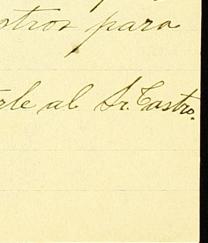 stros para
rle al Sr. Castro.